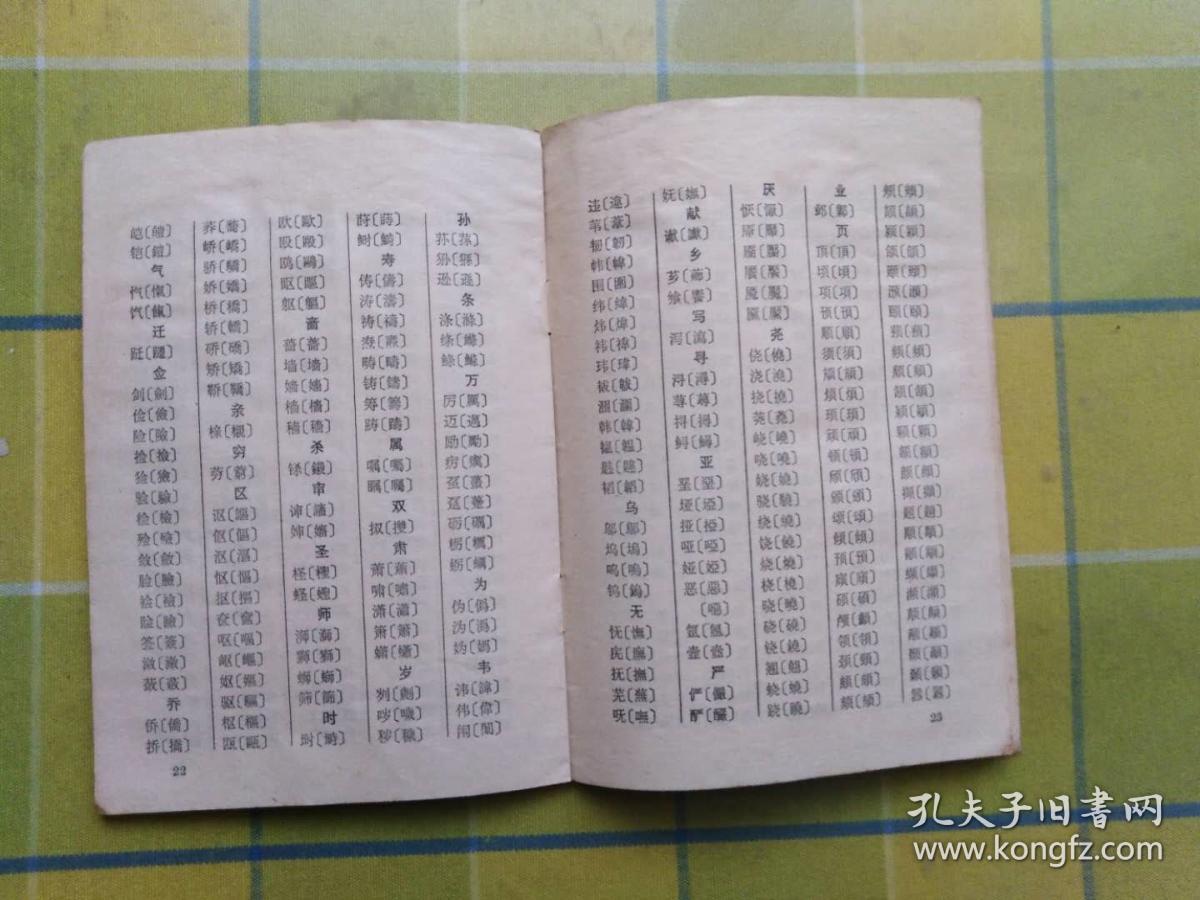 皑〔皚〕
铠〔鎧〕
气
忾〔愾〕
饩〔餼〕
迁
跹〔躚〕
佥
剑〔劍〕
俭〔儉〕
险〔險〕
捡〔撿〕
猃〔獫〕
验〔驗〕
检〔檢〕
殓〔殮〕
敛〔斂〕
脸〔臉〕
裣〔襝〕
睑〔瞼〕
签〔簽〕
潋〔瀲〕
蔹〔蘞〕
乔
侨〔僑〕
挢〔撟〕
荞〔蕎〕
峤〔嶠〕
骄〔驕〕
娇〔嬌〕
桥〔橋〕
轿〔轎〕
硚〔礄〕
矫〔矯〕
鞒〔鞽〕
亲
榇〔櫬〕
穷
䓖〔藭〕
区
讴〔謳〕
伛〔傴〕
沤〔漚〕
怄〔慪〕
抠〔摳〕
奁〔奩〕
呕〔嘔〕
岖〔嶇〕
妪〔嫗〕
驱〔驅〕
枢〔樞〕
瓯〔甌〕
欧〔歐〕
殴〔毆〕
鸥〔鷗〕
眍〔瞘〕
躯〔軀〕
啬
蔷〔薔〕
墙〔墻〕
嫱〔嬙〕
樯〔檣〕
穑〔穡〕
杀
铩〔鎩〕
审
谉〔讅〕
婶〔嬸〕
圣
柽〔檉〕
蛏〔蟶〕
师
浉〔溮〕
狮〔獅〕
蛳〔螄〕
筛〔篩〕
时
埘〔塒〕
莳〔蒔〕
鲥〔鰣〕
寿
俦〔儔〕
涛〔濤〕
祷〔禱〕
焘〔燾〕
畴〔疇〕
铸〔鑄〕
筹〔籌〕
踌〔躊〕
属
嘱〔囑〕
瞩〔矚〕
双
㧐〔㩳〕
肃
萧〔蕭〕
啸〔嘯〕
潇〔瀟〕
箫〔簫〕
蟏〔蠨〕
岁
刿〔劌〕
哕〔噦〕
秽〔穢〕
孙
荪〔蓀〕
狲〔猻〕
逊〔遜〕
条
涤〔滌〕
绦〔縧〕
鲦〔鰷〕
万
厉〔厲〕
迈〔邁〕
励〔勵〕
疠〔癘〕
虿〔蠆〕
趸〔躉〕
砺〔礪〕
粝〔糲〕
蛎〔蠣〕
为
伪〔偽〕
沩〔溈〕
妫〔媯〕
韦
讳〔諱〕
伟〔偉〕
闱〔闈〕
22
违〔違〕
苇〔葦〕
韧〔韌〕
帏〔幃〕
围〔圍〕
纬〔緯〕
炜〔煒〕
祎〔禕〕
玮〔瑋〕
韨〔韍〕
涠〔潿〕
韩〔韓〕
韫〔韞〕
韪〔韙〕
韬〔韜〕
乌
邬〔鄔〕
坞〔塢〕
呜〔嗚〕
钨〔鎢〕
无
怃〔憮〕
庑〔廡〕
抚〔撫〕
芜〔蕪〕
呒〔嘸〕
妩〔嫵〕
献
谳〔讞〕
乡
芗〔薌〕
飨〔饗〕
写
泻〔瀉〕
寻
浔〔潯〕
荨〔蕁〕
挦〔撏〕
鲟〔鱘〕
亚
垩〔堊〕
垭〔埡〕
挜〔掗〕
哑〔啞〕
娅〔婭〕
恶〔惡〕
〔噁〕
氩〔氬〕
壶〔壺〕
严
俨〔儼〕
酽〔釅〕
厌
恹〔懨〕
厣〔厴〕
靥〔靨〕
餍〔饜〕
魇〔魘〕
黡〔黶〕
尧
侥〔僥〕
浇〔澆〕
挠〔撓〕
荛〔蕘〕
峣〔嶢〕
哓〔嘵〕
娆〔嬈〕
骁〔驍〕
绕〔繞〕
饶〔饒〕
烧〔燒〕
桡〔橈〕
晓〔曉〕
硗〔磽〕
铙〔鐃〕
翘〔翹〕
蛲〔蟯〕
跷〔蹺〕
业
邺〔鄴〕
页
顶〔頂〕
顷〔頃〕
项〔項〕
顸〔頇〕
顺〔順〕
须〔須〕
颃〔頏〕
烦〔煩〕
顼〔頊〕
顽〔頑〕
顿〔頓〕
颁〔頒〕
颂〔頌〕
倾〔傾〕
预〔預〕
庼〔廎〕
硕〔碩〕
颅〔顱〕
领〔領〕
颈〔頸〕
颇〔頗〕
颏〔頦〕
颊〔頰〕
颉〔頡〕
颖〔穎〕
颌〔頜〕
颋〔頲〕
滪〔澦〕
颐〔頤〕
蓣〔蕷〕
频〔頻〕
颓〔頹〕
颔〔頷〕
颖〔穎〕
颗〔顆〕
额〔額〕
颜〔顏〕
撷〔擷〕
题〔題〕
颙〔顒〕
颛〔顓〕
缬〔纈〕
濒〔瀕〕
颠〔顛〕
颟〔顢〕
颞〔顳〕
颡〔顙〕
嚣〔囂〕
23
孔夫子旧书网
www.kongfz.com